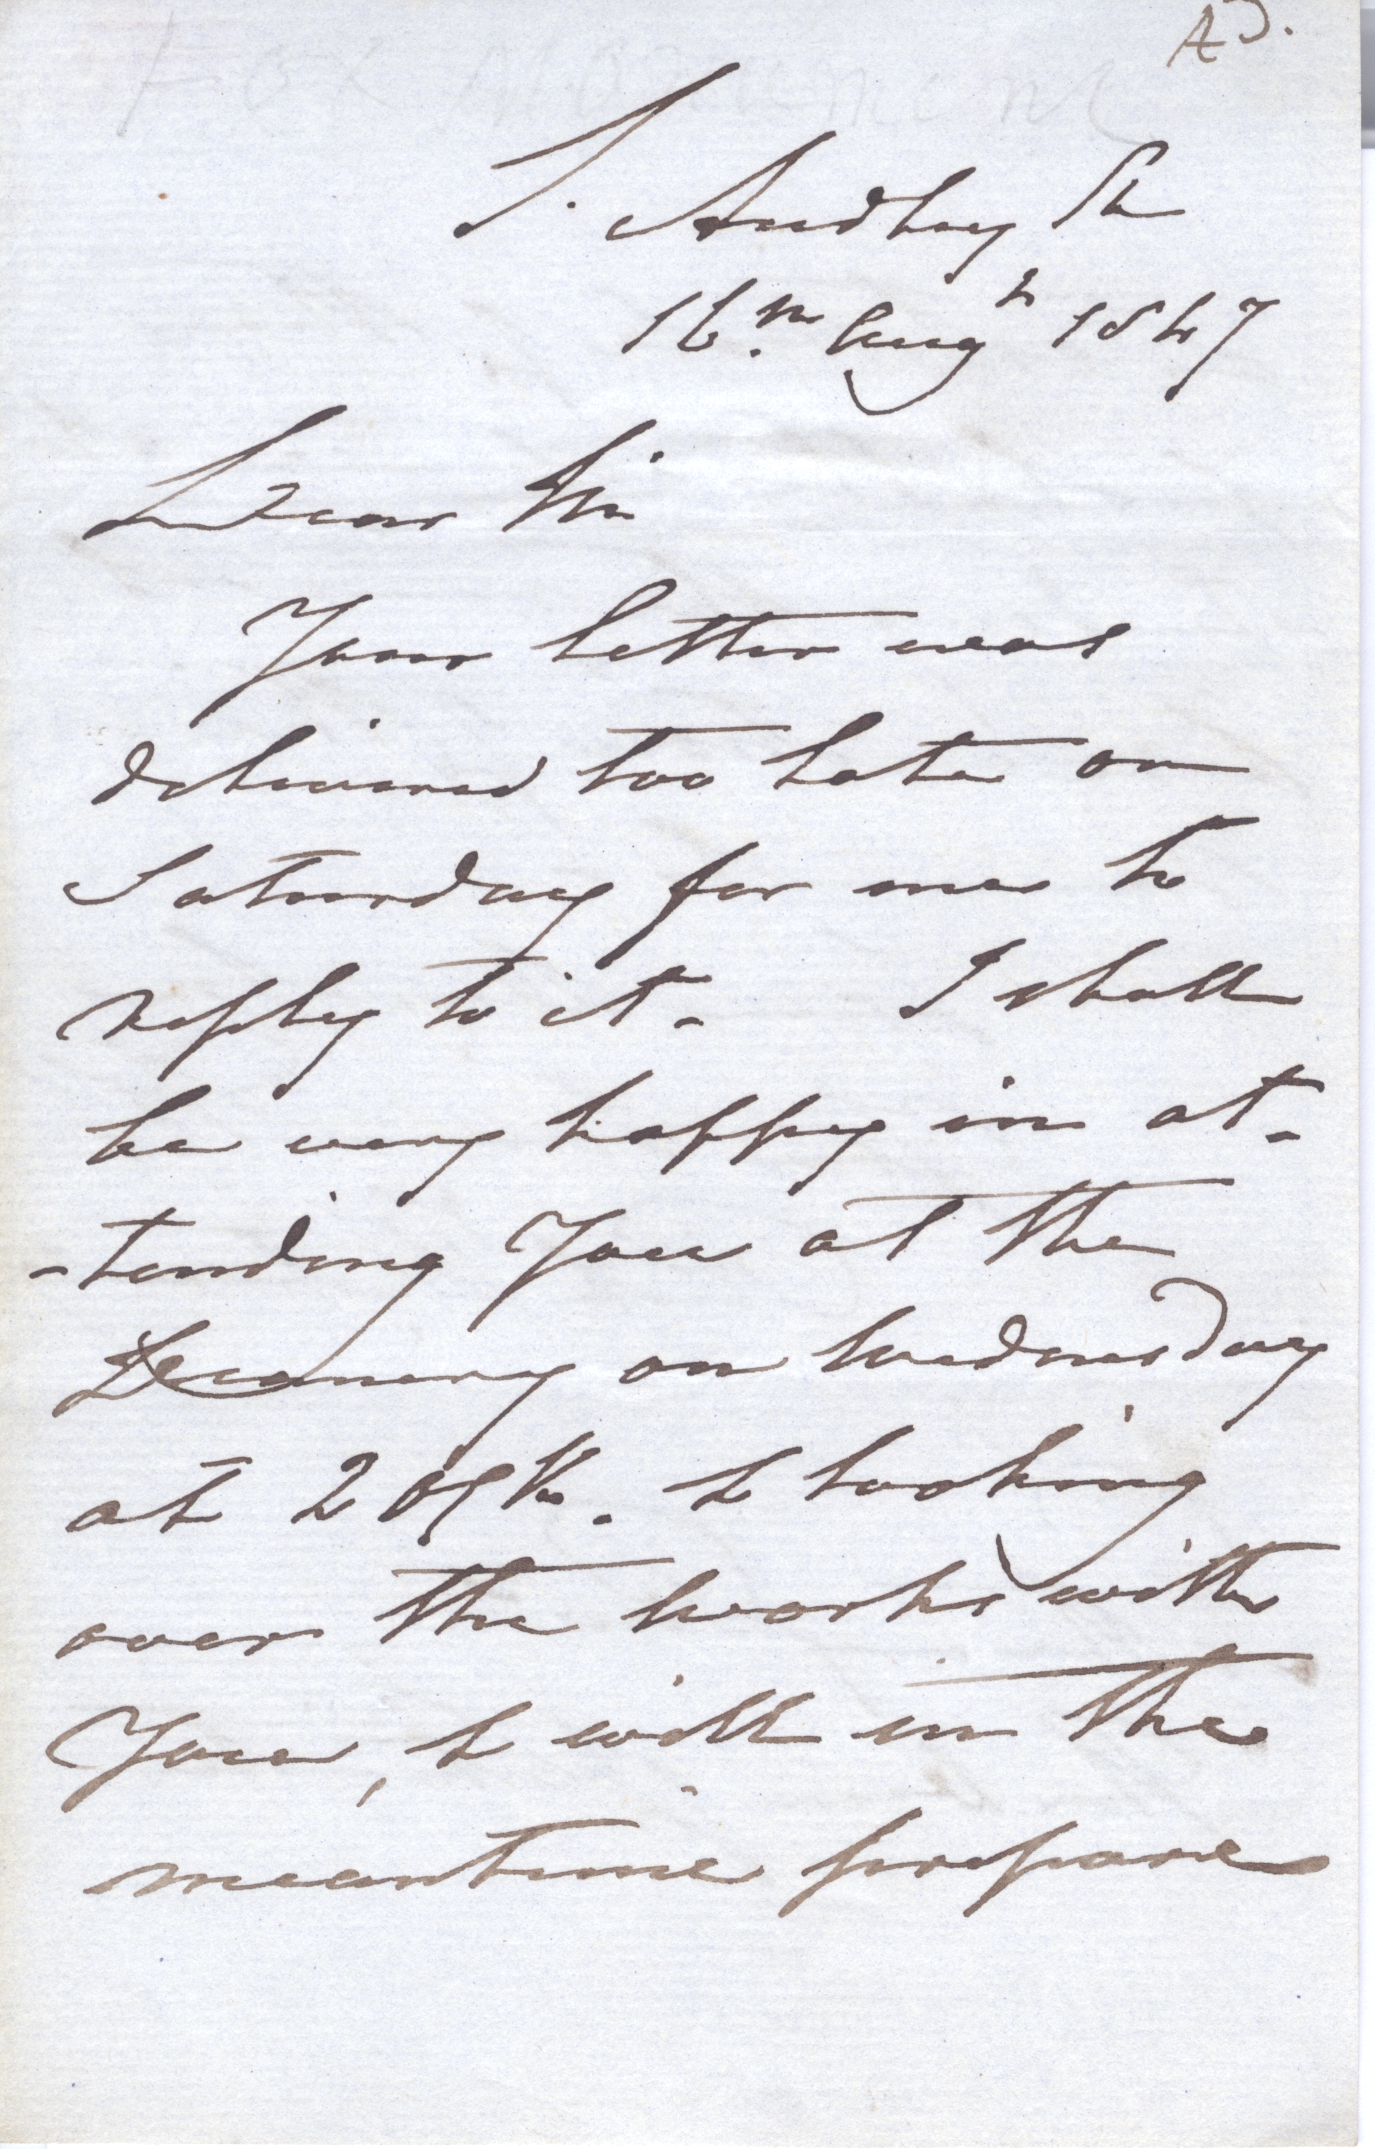 AD.
S. Audley St
16th Augt 1847
Dear Sir
Your letter was
delivered too late on
Saturday for me to
reply to it - I shall
be very happy in at-
-tending You at the
Deanery on Wednesday
at 2 oClk. & looking
over the works with
You, & will in the
meantime prepare